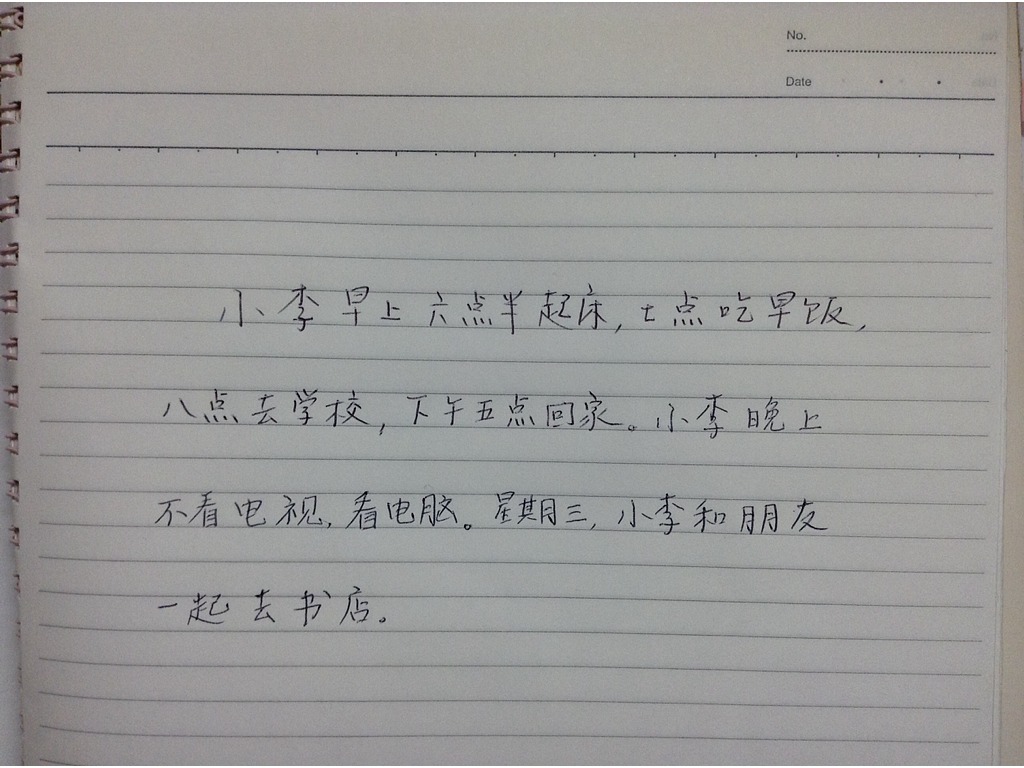 No.
Date
小李早上六点半起床,七点吃早饭,
八点去学校,下午五点回家。小李晚上
不看电视,看电脑。星期三,小李和朋友
一起去书店。